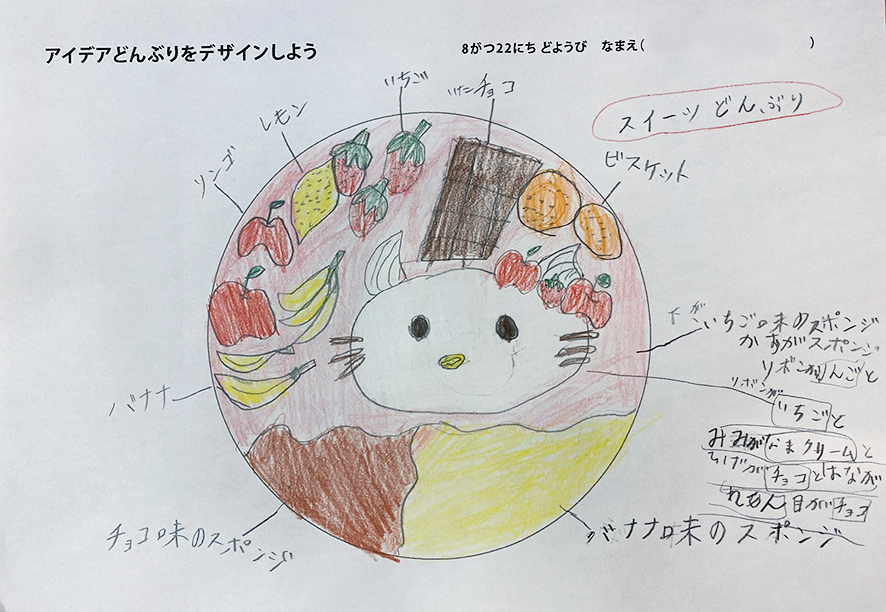 アイデアどんぶりをデザインしよう
8がつ22にち どようび なまえ( )
スイーツ どんぶり
いちご
チョコ
レモン
リンゴ
ビスケット
バナナ
下が いちご味のスポンジ
かおがスポンジ
リボンがりんごと
リボンが
いちごと
みみがなまクリームと
ひげがチョコとはなが
れもん目がチョコ
チョコ味のスポンジ
バナナ味のスポンジ